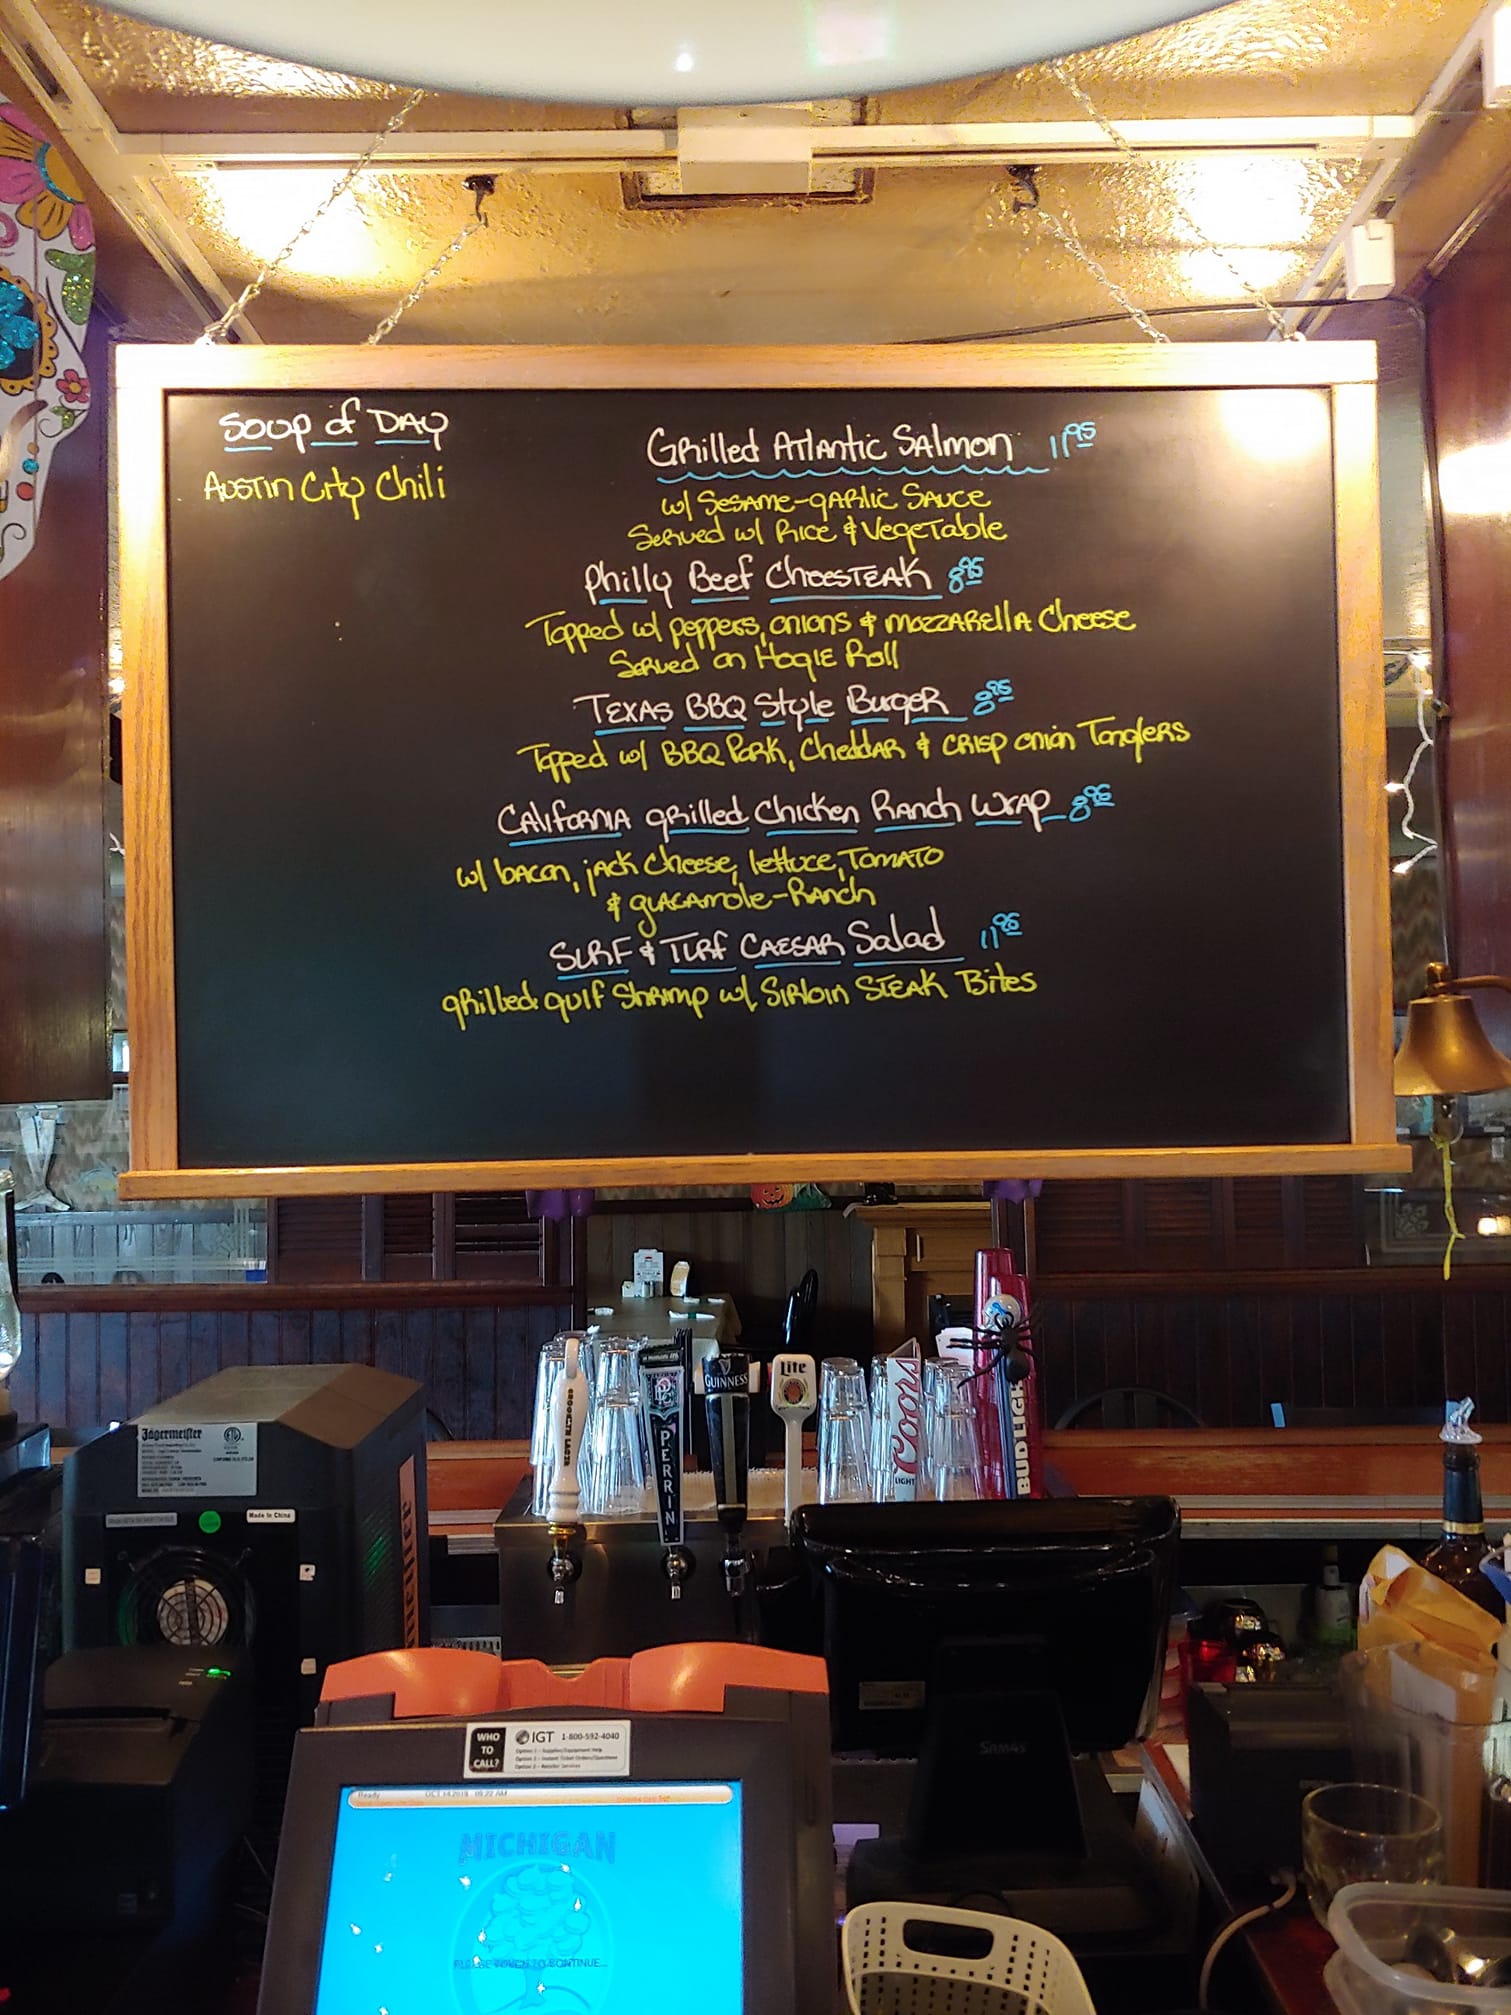 Soup of Day
Austin City Chili
Grilled Atlantic Salmon 11.95
w/ Sesame-garlic Sauce
Served w/ Rice & Vegetable
Philly Beef Cheesteak 8.95
Topped w/ peppers, onions & mozzarella Cheese
Served on Hogie Roll
Texas BBQ Style Burger 8.95
Topped w/ BBQ Pork, Cheddar & crisp onion Tanglers
California grilled Chicken Ranch Wrap 8.95
w/ bacon, jack cheese, lettuce, Tomato
& guacamole-Ranch
Surf & Turf Caesar Salad 11.95
grilled gulf Shrimp w/ Sirloin Steak Bites
Jägermeister
Made In China
PERRIN
GUINNESS
Lite
Coors
LIGHT
BUD LIGHT
SAM4s
WHO
TO
CALL?
IGT 1-800-592-4040
Option 1 - Supplies/Equipment Help
Option 2 - Instant Ticket Orders/Questions
Option 3 - Retailer Services
Ready
MICHIGAN
PLEASE TOUCH TO CONTINUE...